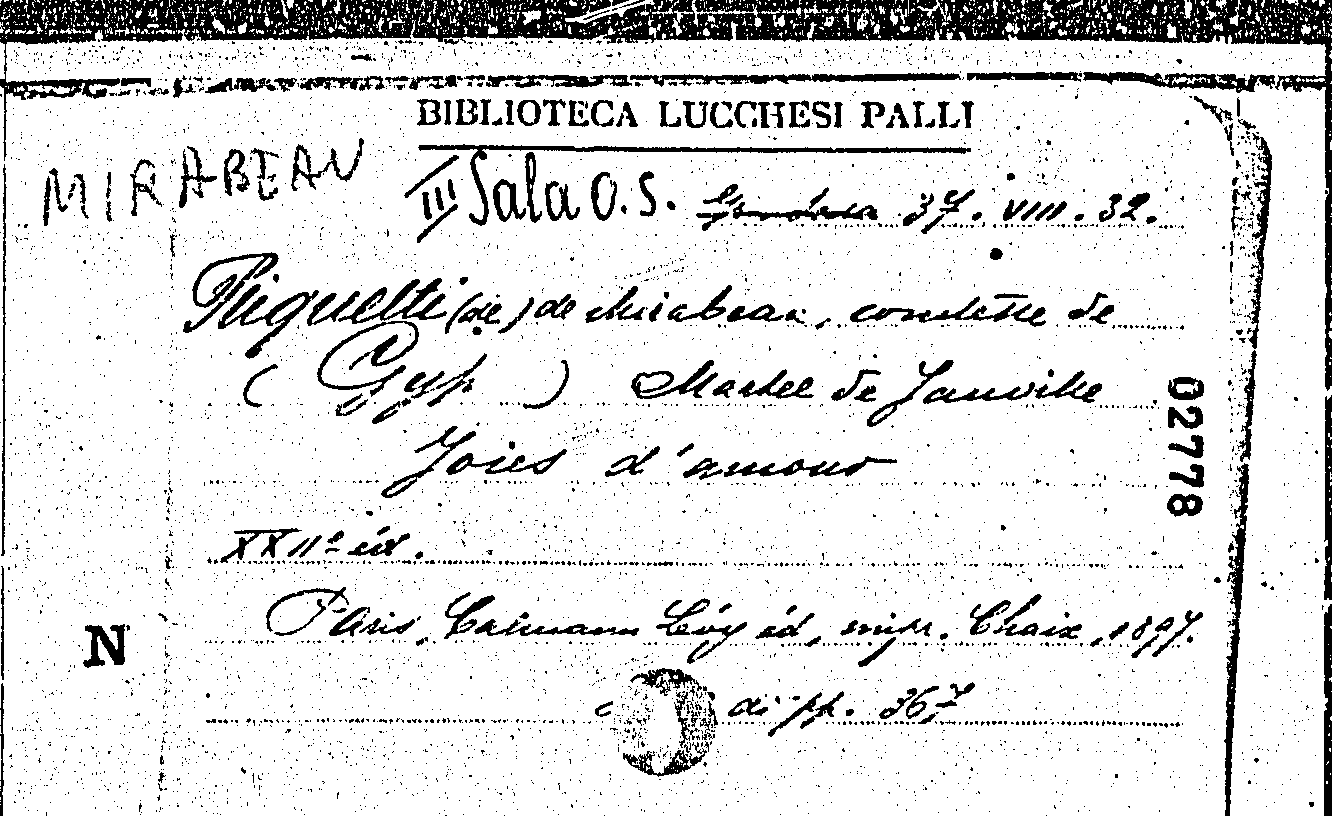 BIBLIOTECA LUCCHESI PALLI
MIRABEAU
III Sala O. S. 37. VIII. 32.
Riquetti (de) de Mirabeau, comtesse de
(Gyp) Martel de Janville
Joies d'amour
XXIIe éd.
Paris, Calmann Lévy éd, impr. Chaix, 1897.
di pp. 367
02778
N